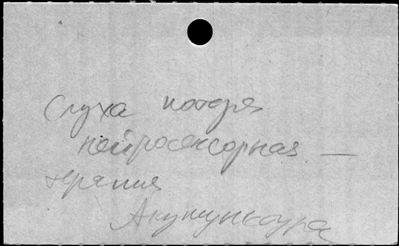 Слуха потеря
нейросенсорная —
терапия
Акупунктура